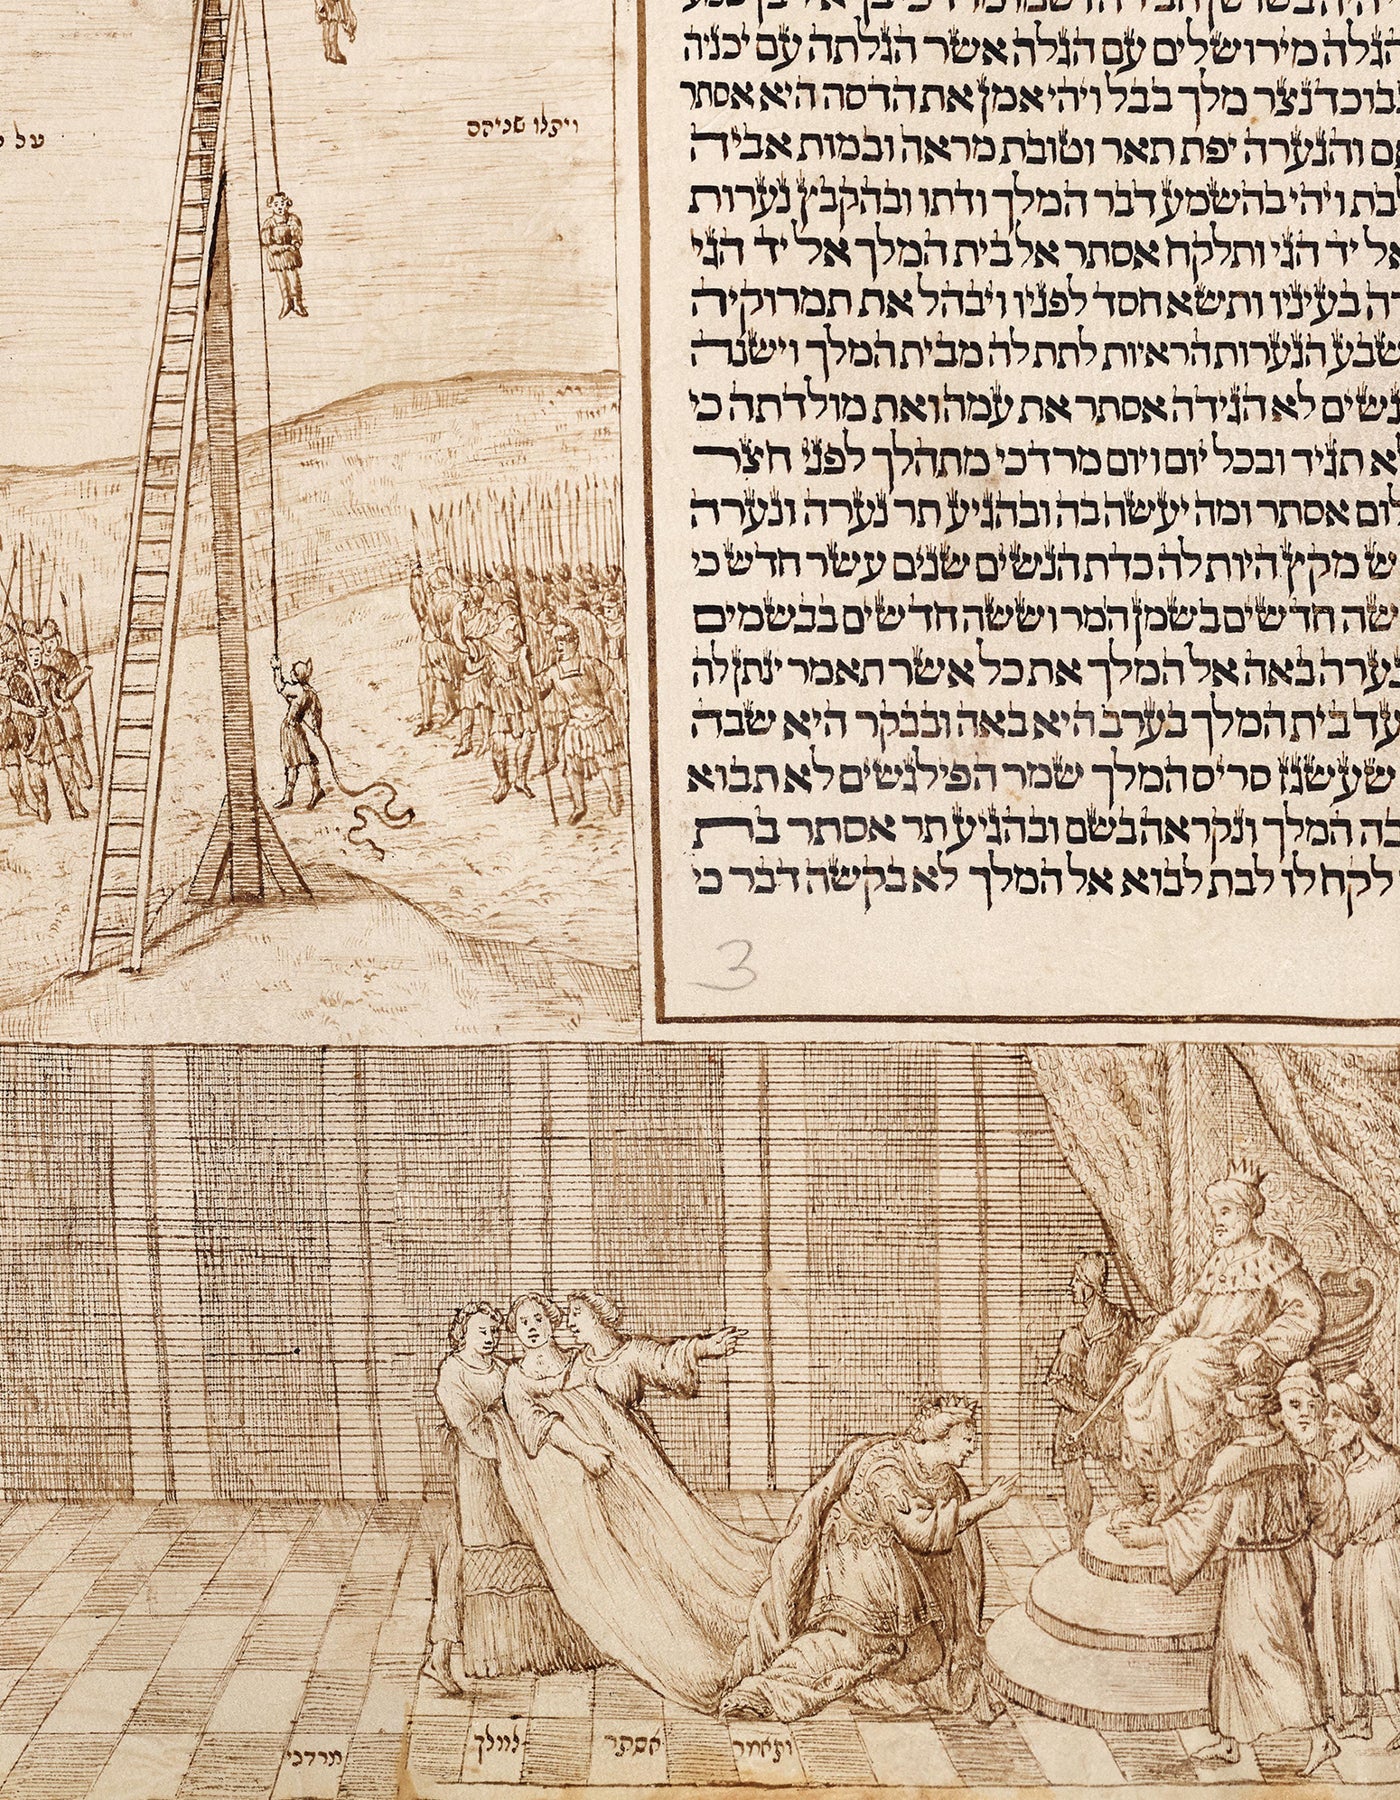 הגלה מירושלים עם הגלה אשר הגלתה עם יכניה
בוכדנצר מלך בבל ויהי אמן את הדסה היא אסתר
אם והנערה יפת תאר וטובת מראה ובמות אביה
לבת ויהי בהשמע דבר המלך ודתו ובהקבץ נערות
אל יד הגי ותלקח אסתר אל בית המלך אל יד הגי
רה בעיניו ותשא חסד לפניו ויבהל את תמרוקיה
שבע הנערות הראיות לתת לה מבית המלך וישנה
נשים לא הגידה אסתר את עמה ואת מולדתה כי
לא תגיד ובכל יום ויום מרדכי מתהלך לפני חצר
לום אסתר ומה יעשה בה ובהגיע תר נערה ונערה
ש מקץ היות לה כדת הנשים שנים עשר חדש כי
ששה חדשים בשמן המר וששה חדשים בבשמים
נערה באה אל המלך את כל אשר תאמר ינתן לה
עד בית המלך בערב היא באה ובבקר היא שבה
שעשגז סריס המלך שמר הפילגשים לא תבוא
בה המלך ונקראה בשם ובהגיע תר אסתר בת
לקח לו לבת לבוא אל המלך לא בקשה דבר כי
3
ויתלו שניהם
על
ותאמר אסתר למלך מרדכי